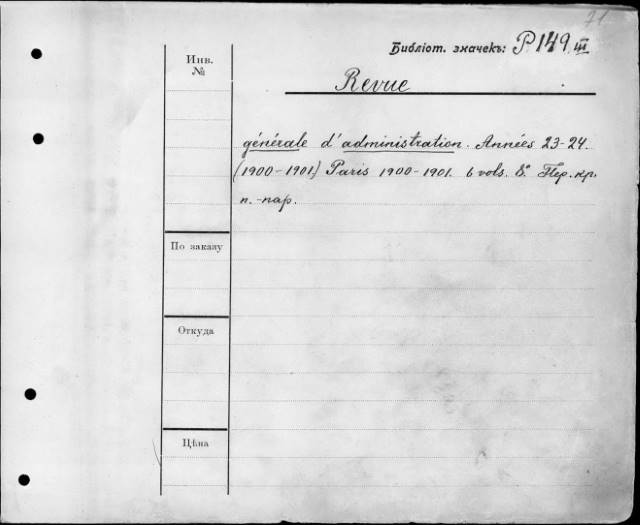 71
Библіот. значекъ: P.149.III
Инв.
№
Revue
générale d'administration. Années 23-24.
(1900-1901) Paris 1900-1901. 6 vols. 8° Пер. кр.
п.-пар.
По заказу
Откуда
Цѣна